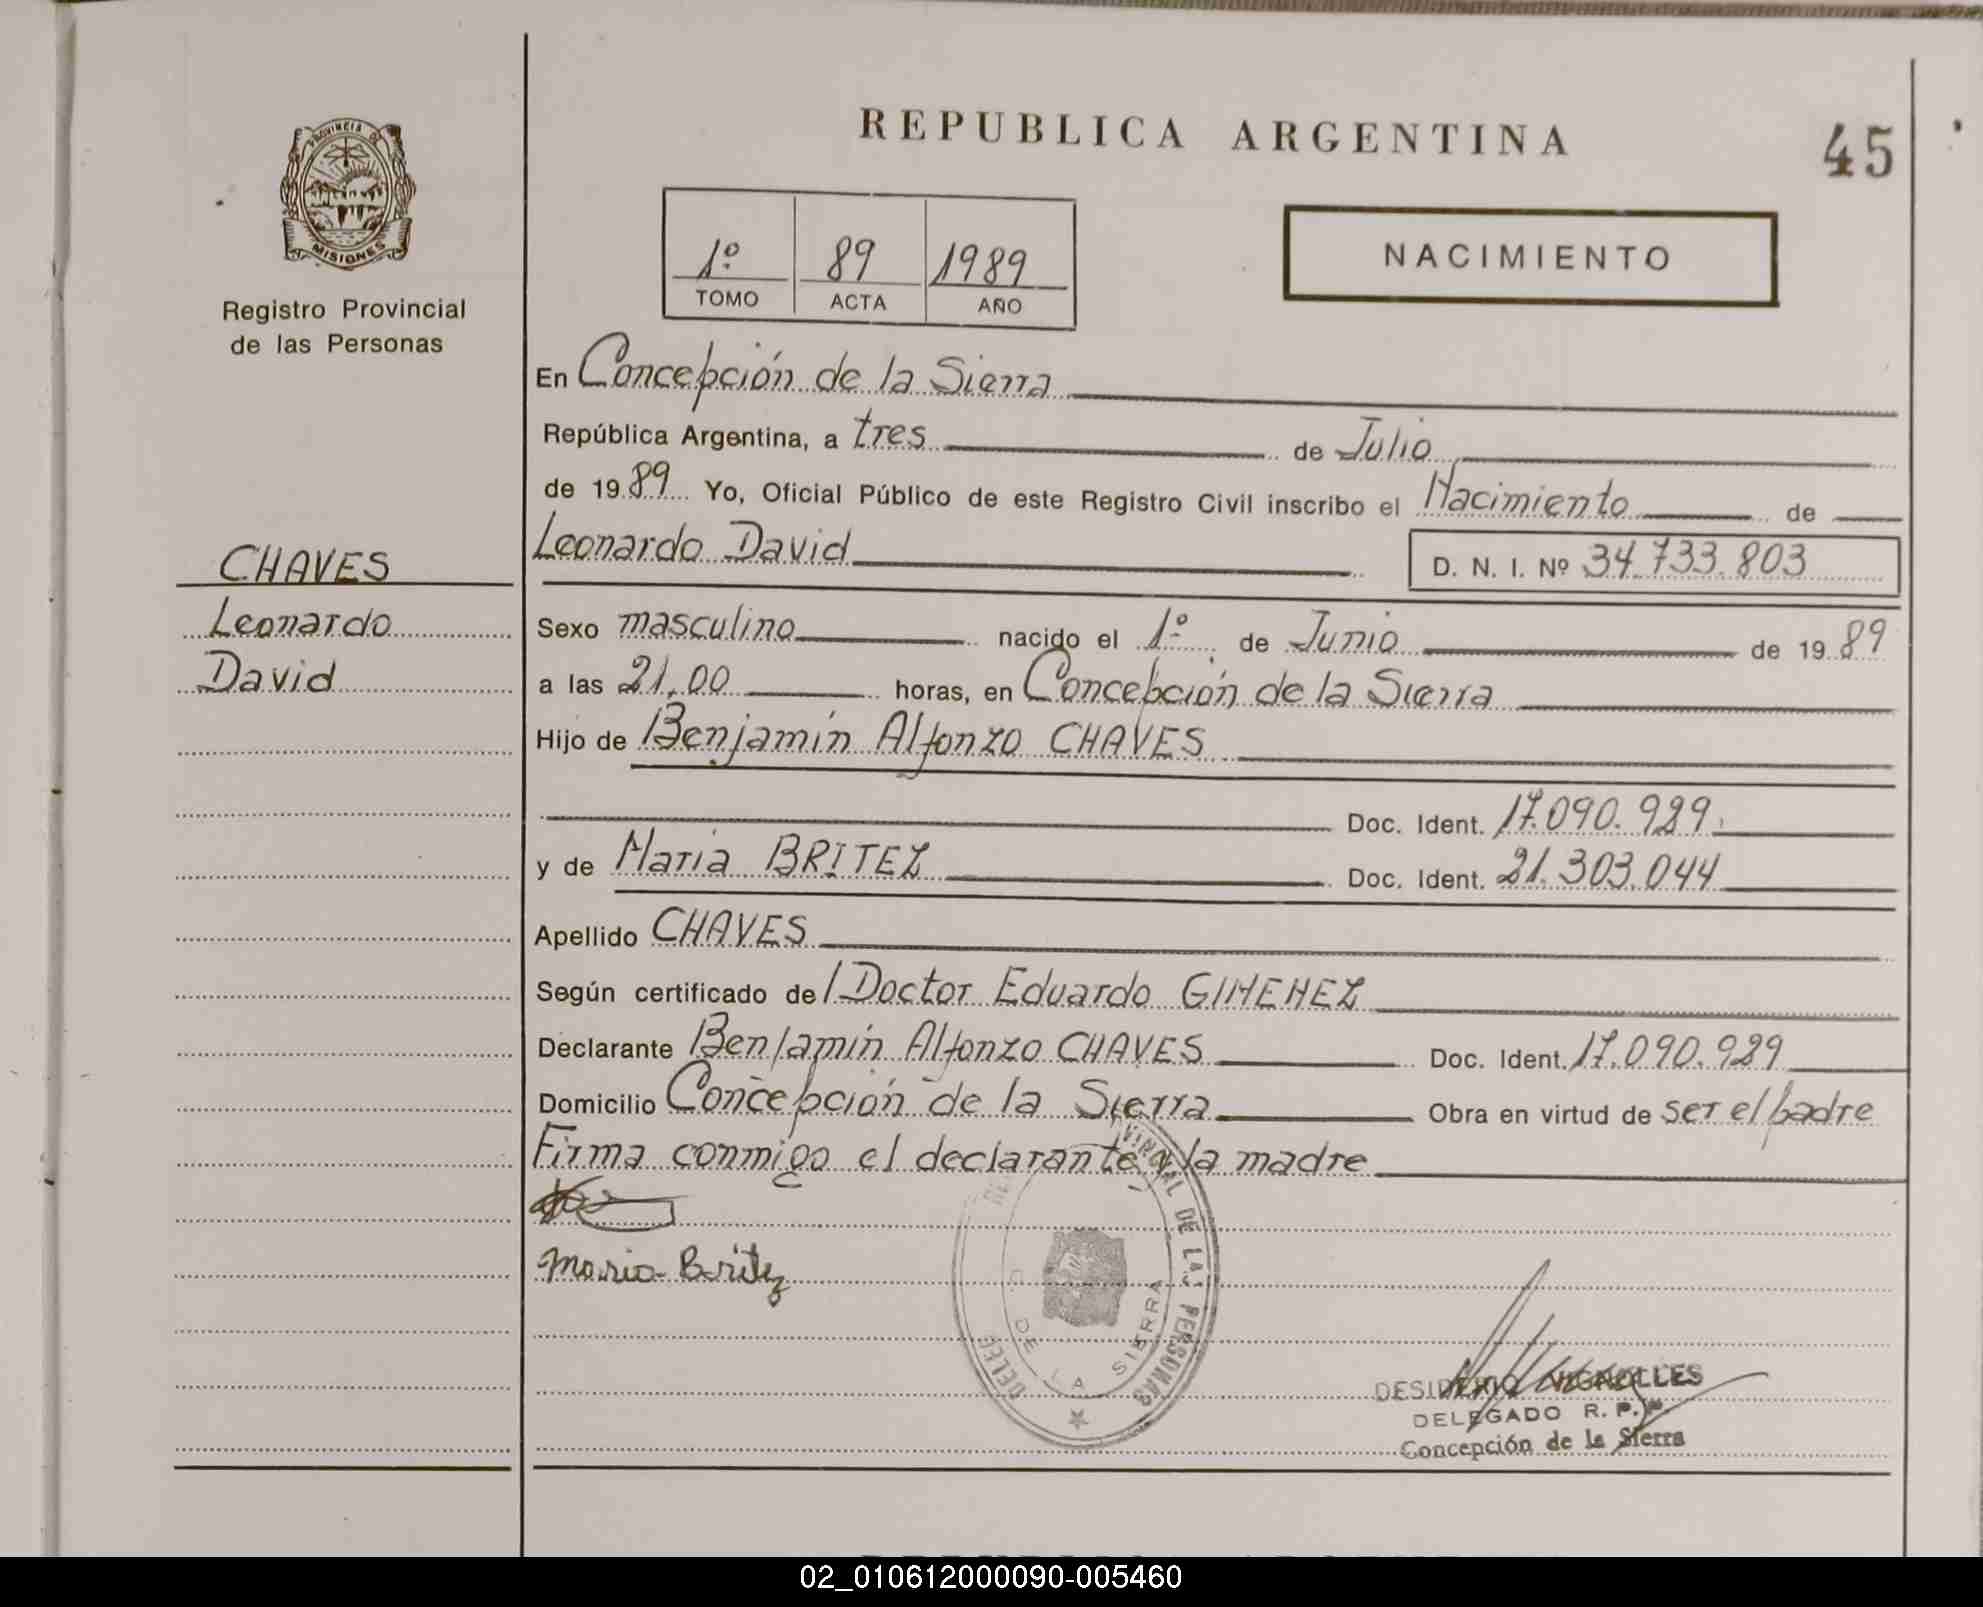 PROVINCIA DE
MISIONES
Registro Provincial
de las Personas
CHAVES
Leonardo
David
REPUBLICA ARGENTINA
45
1º 89 1989
TOMO ACTA AÑO
NACIMIENTO
En Concepción de la Sierra
República Argentina, a tres de Julio
de 1989 Yo, Oficial Público de este Registro Civil inscribo el Nacimiento de
Leonardo David D. N. I. Nº 34.733.803
Sexo masculino nacido el 1º de Junio de 1989
a las 21,00 horas, en Concepción de la Sierra
Hijo de Benjamín Alfonzo CHAVES
Doc. Ident. 17.090.989
y de Maria BRITEZ Doc. Ident. 21.303.044
Apellido CHAVES
Según certificado del Doctor Eduardo GIMENEZ
Declarante Benjamín Alfonzo CHAVES Doc. Ident. 17.090.989
Domicilio Concepción de la Sierra Obra en virtud de ser el padre
Firma conmigo el declarante y la madre
Maria Britez
VINCIAL DE LAS PERSONAS
DELEG
C. DE LA SIERRA
DESIDERIO VIGNOLLES
DELEGADO R. P. P.
Concepción de la Sierra
02_010612000090-005460